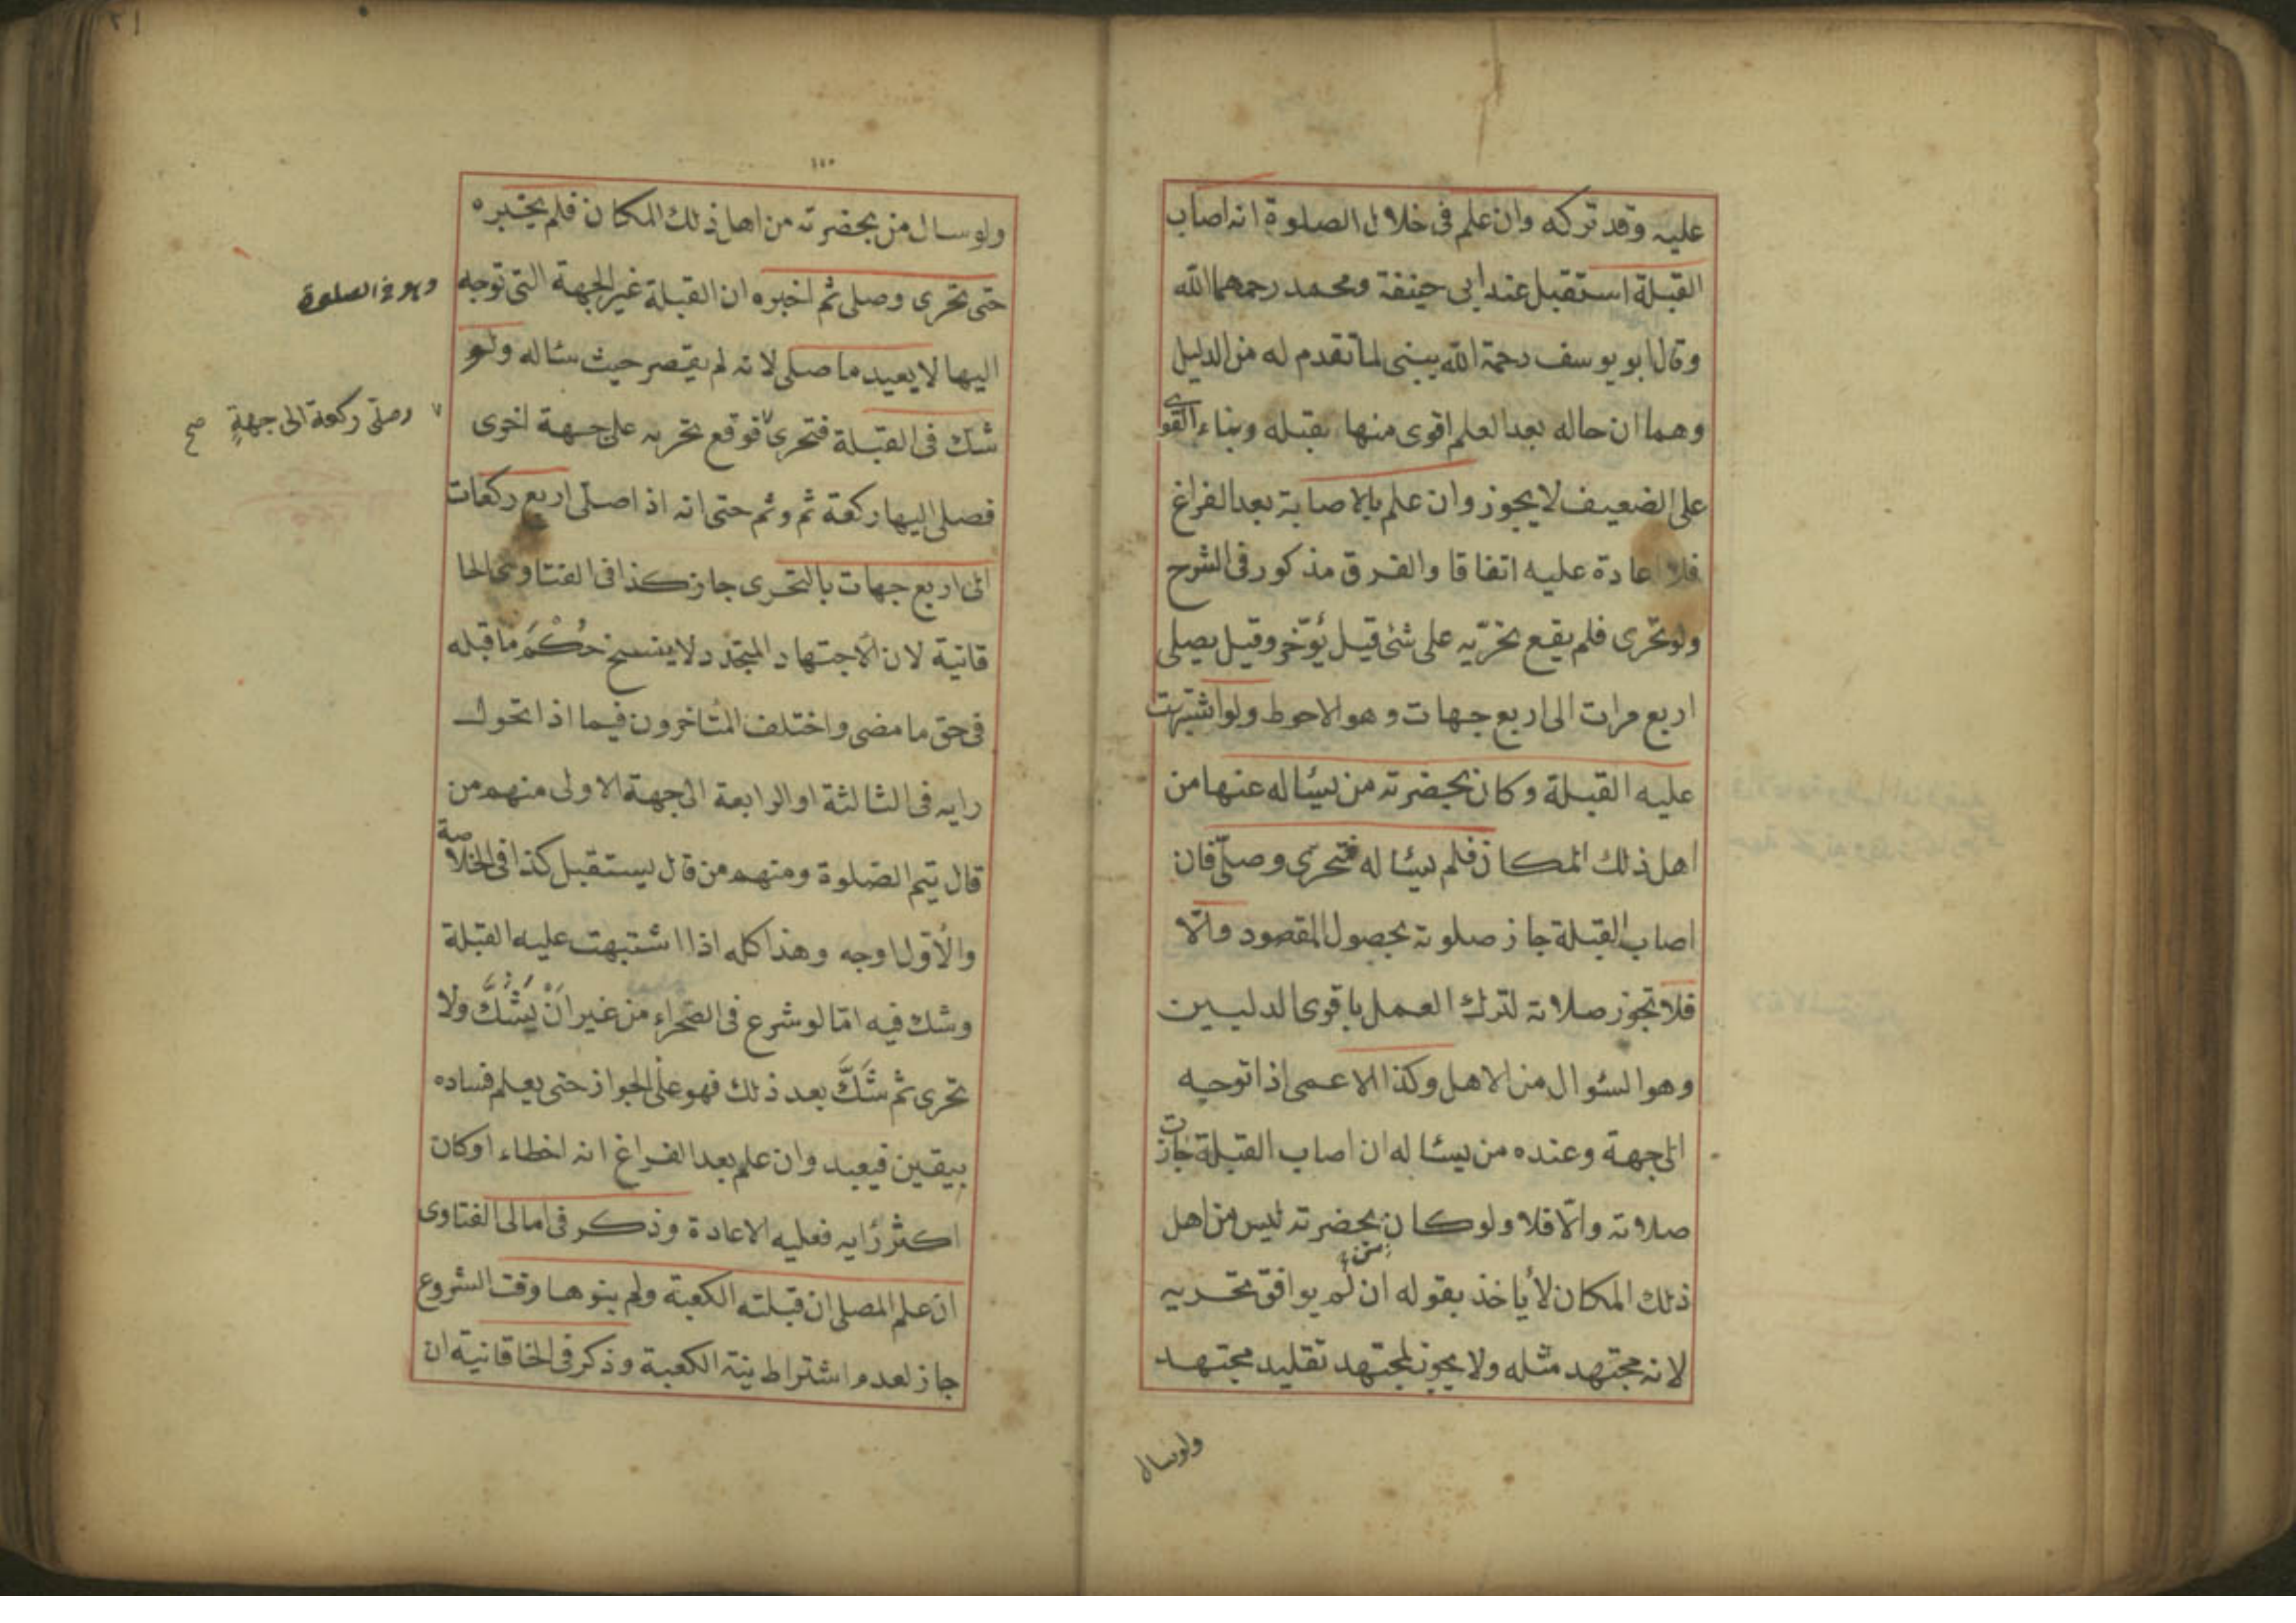 عليه وقد تركه وان علم في خلال الصلوة انه اصاب
القبلة استقبل عند ابى حنيفة ومحمد رحمهما الله
وقال ابو يوسف رحمة الله يبنى لما تقدم له من الدليل
وهما ان حاله بعد العلم اقوى منها بقبله وبناء القوى
على الضعيف لا يجوز وان علم بالاصابة بعد الفراغ
فلا اعادة عليه اتفاقا والفرق مذكور فى الشرح
ولو تحرى فلم يقع تحرّيه على شئ قيل يؤخّر وقيل يصلى
اربع مرات الى اربع جهات وهو الاحوط ولو اشتبهت
عليه القبلة وكان بحضرته من يسئاله عنها من
اهل ذلك المكان فلم يسئاله فتحرى وصلّى فان
اصاب القبلة جاز صلوته بحصول المقصود والّا
فلا تجوز صلاته لترك العمل باقوى الدليلين
وهو السئوال من الاهل وكذا الاعمى اذا توجه
الى جهة وعنده من يسئاله ان اصاب القبلة جازت
صلاته والّا فلا ولو كان بحضرته ليس من اهل
ذلك المكان لا يأخذ بقوله ان لم يوافق تحريه
لانه مجتهد مثله ولا يجوز لمجتهد تقليد مجتهد
ولو سال
١١٠
ولو سال من بحضرته من اهل ذلك المكان فلم يخبره
حتى تحرى وصلى ثم اخبره ان القبلة غير الجهة التى توجه
وهو فى الصلوة
اليها لا يعيد ما صلى لانه لم يقصر حيث سئاله ولو
شك فى القبلة فتحرى ٧ فوقع تحريه على جهة اخرى
٧ وصلّى ركعة الى جهةٍ صح
فصلى اليها ركعة ثم وثم حتى انه اذا صلّى اربع ركعات
الى اربع جهات بالتحرى جاز كذا فى الفتاوى الخا
قانية لان الاجتهاد المتجدّد لا ينسخ حُكْمَ ما قبله
فى حق ما مضى واختلف المتاخرون فيما اذا تحول
رايه فى الثالثة او الرابعة الى جهة الاولى منهم من
قال يتم الصّلوة ومنهم من قال يستقبل كذا فى الخلاصة
والأوّل اوجه وهذا كله اذا اشتبهت عليه القبلة
وشك فيه امّا لو شرع فى الصّحراء من غير اَنْ يَشُكَّ ولا
تحرى ثم شَكَّ بعد ذلك فهو على الجواز حتى يعلم فساده
بيقين فيعيد وان علم بعد الفراغ انه اخطاء او كان
اكثر رايه فعليه الاعادة وذكر فى امالى الفتاوى
ان علم المصلى ان قبلته الكعبة ولم ينوها وقت الشروع
جاز لعدم اشتراط نية الكعبة وذكر فى الخاقانية ان